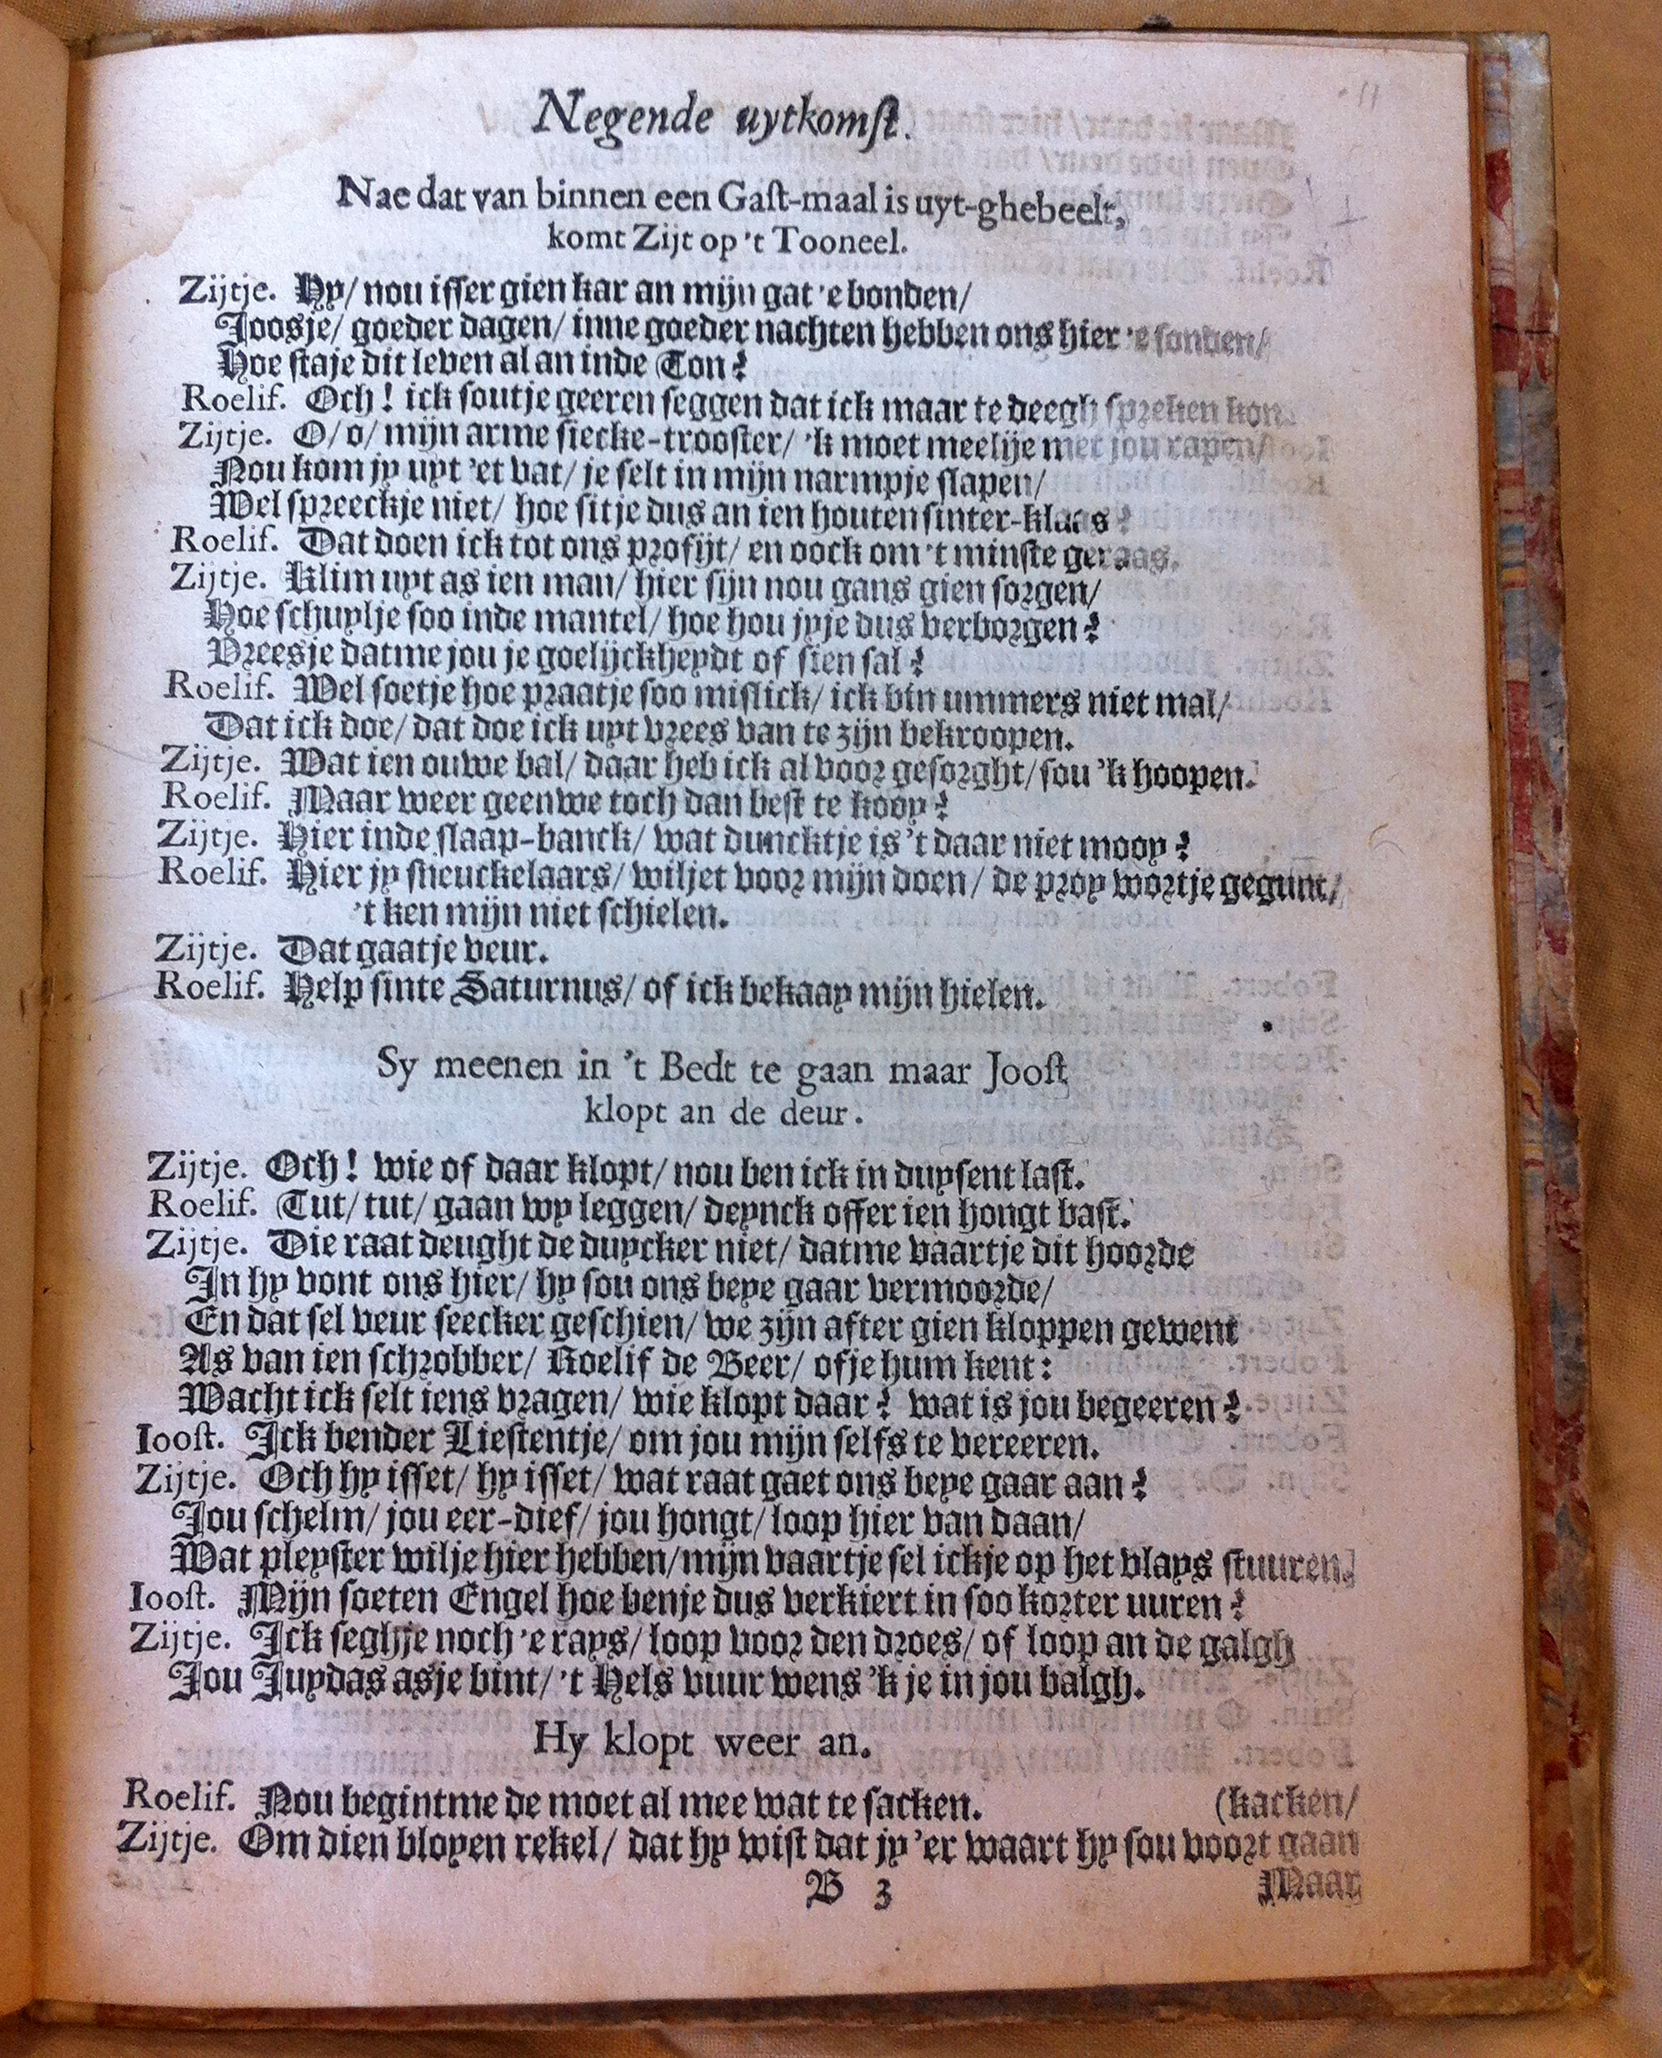 Negende uytkomst.
Nae dat van binnen een Gast-maal is uyt-ghebeelt,
komt Zijt op 't Tooneel.
Zijtje. Hy/ nou isser gien kar an mijn gat 'e bonden/
Joosje/ goeder dagen/ inne goeder nachten hebben ons hier 'e sonden/
Hoe staje dit leven al an inde Ton?
Roelif. Och! ick soutje geeren seggen dat ick maar te deegh spreken kon.
Zijtje. O/ o/ mijn arme siecke-trooster/ 'k moet meelije met jou rapen/
Nou kom jy uyt 'et vat/ je selt in mijn narmpje slapen/
Wel spreeckje niet/ hoe sitje dus an ien houten sinter-klaas?
Roelif. Dat doen ick tot ons profijt/ en oock om 't minste geraas.
Zijtje. Klim uyt as ien man/ hier sijn nou gans gien sorgen/
Hoe schuylje soo inde mantel/ hoe hou jyje dus verborgen?
Vreesje datme jou je goelijckheydt of sien sal?
Roelif. Wel soetje hoe praatje soo mislick/ ick bin ummers niet mal/
Dat ick doe/ dat doe ick uyt vrees van te zijn bekroopen.
Zijtje. Wat ien ouwe bal/ daar heb ick al voor gesorght/ sou 'k hoopen.
Roelif. Maar weer geenwe toch dan best te kooy?
Zijtje. Hier inde slaap-banck/ wat duncktje is 't daar niet mooy?
Roelif. Hier jy sneuckelaars/ wiljet voor mijn doen/ de proy wortje gegunt/
't ken mijn niet schielen.
Zijtje. Dat gaatje veur.
Roelif. Help sinte Saturnus/ of ick bekaay mijn hielen.
Sy meenen in 't Bedt te gaan maar Joost
klopt an de deur.
Zijtje. Och! wie of daar klopt/ nou ben ick in duysent last.
Roelif. Tut/ tut/ gaan wy leggen/ deynck offer ien hongt bast.
Zijtje. Die raat deught de duycker niet/ datme vaartje dit hoorde
In hy vont ons hier/ hy sou ons beye gaar vermoorde/
En dat sel veur seecker geschien/ we zijn after gien kloppen gewent
As van ien schrobber/ Roelif de Beer/ ofje hum kent:
Wacht ick selt iens vragen/ wie klopt daar? wat is jou begeeren?
Ioost. Ick bender Liestentje/ om jou mijn selfs te vereeren.
Zijtje. Och hy isset/ hy isset/ wat raat gaet ons beye gaar aan?
Jou schelm/ jou eer-dief/ jou hongt/ loop hier van daan/
Wat pleyster wilje hier hebben/ mijn vaartje sel ickje op het vlays stuuren.
Ioost. Mijn soeten Engel hoe benje dus verkiert in soo korter uuren?
Zijtje. Ick seghje noch 'e rays/ loop voor den droes/ of loop an de galgh
Jou Juydas asje bint/ 't Hels vuur wens 'k je in jou balgh.
Hy klopt weer an.
Roelif. Nou begintme de moet al mee wat te sacken. (kacken/
Zijtje. Om dien bloyen rekel/ dat hy wist dat jy 'er waart hy sou voort gaan
B 3 Maar